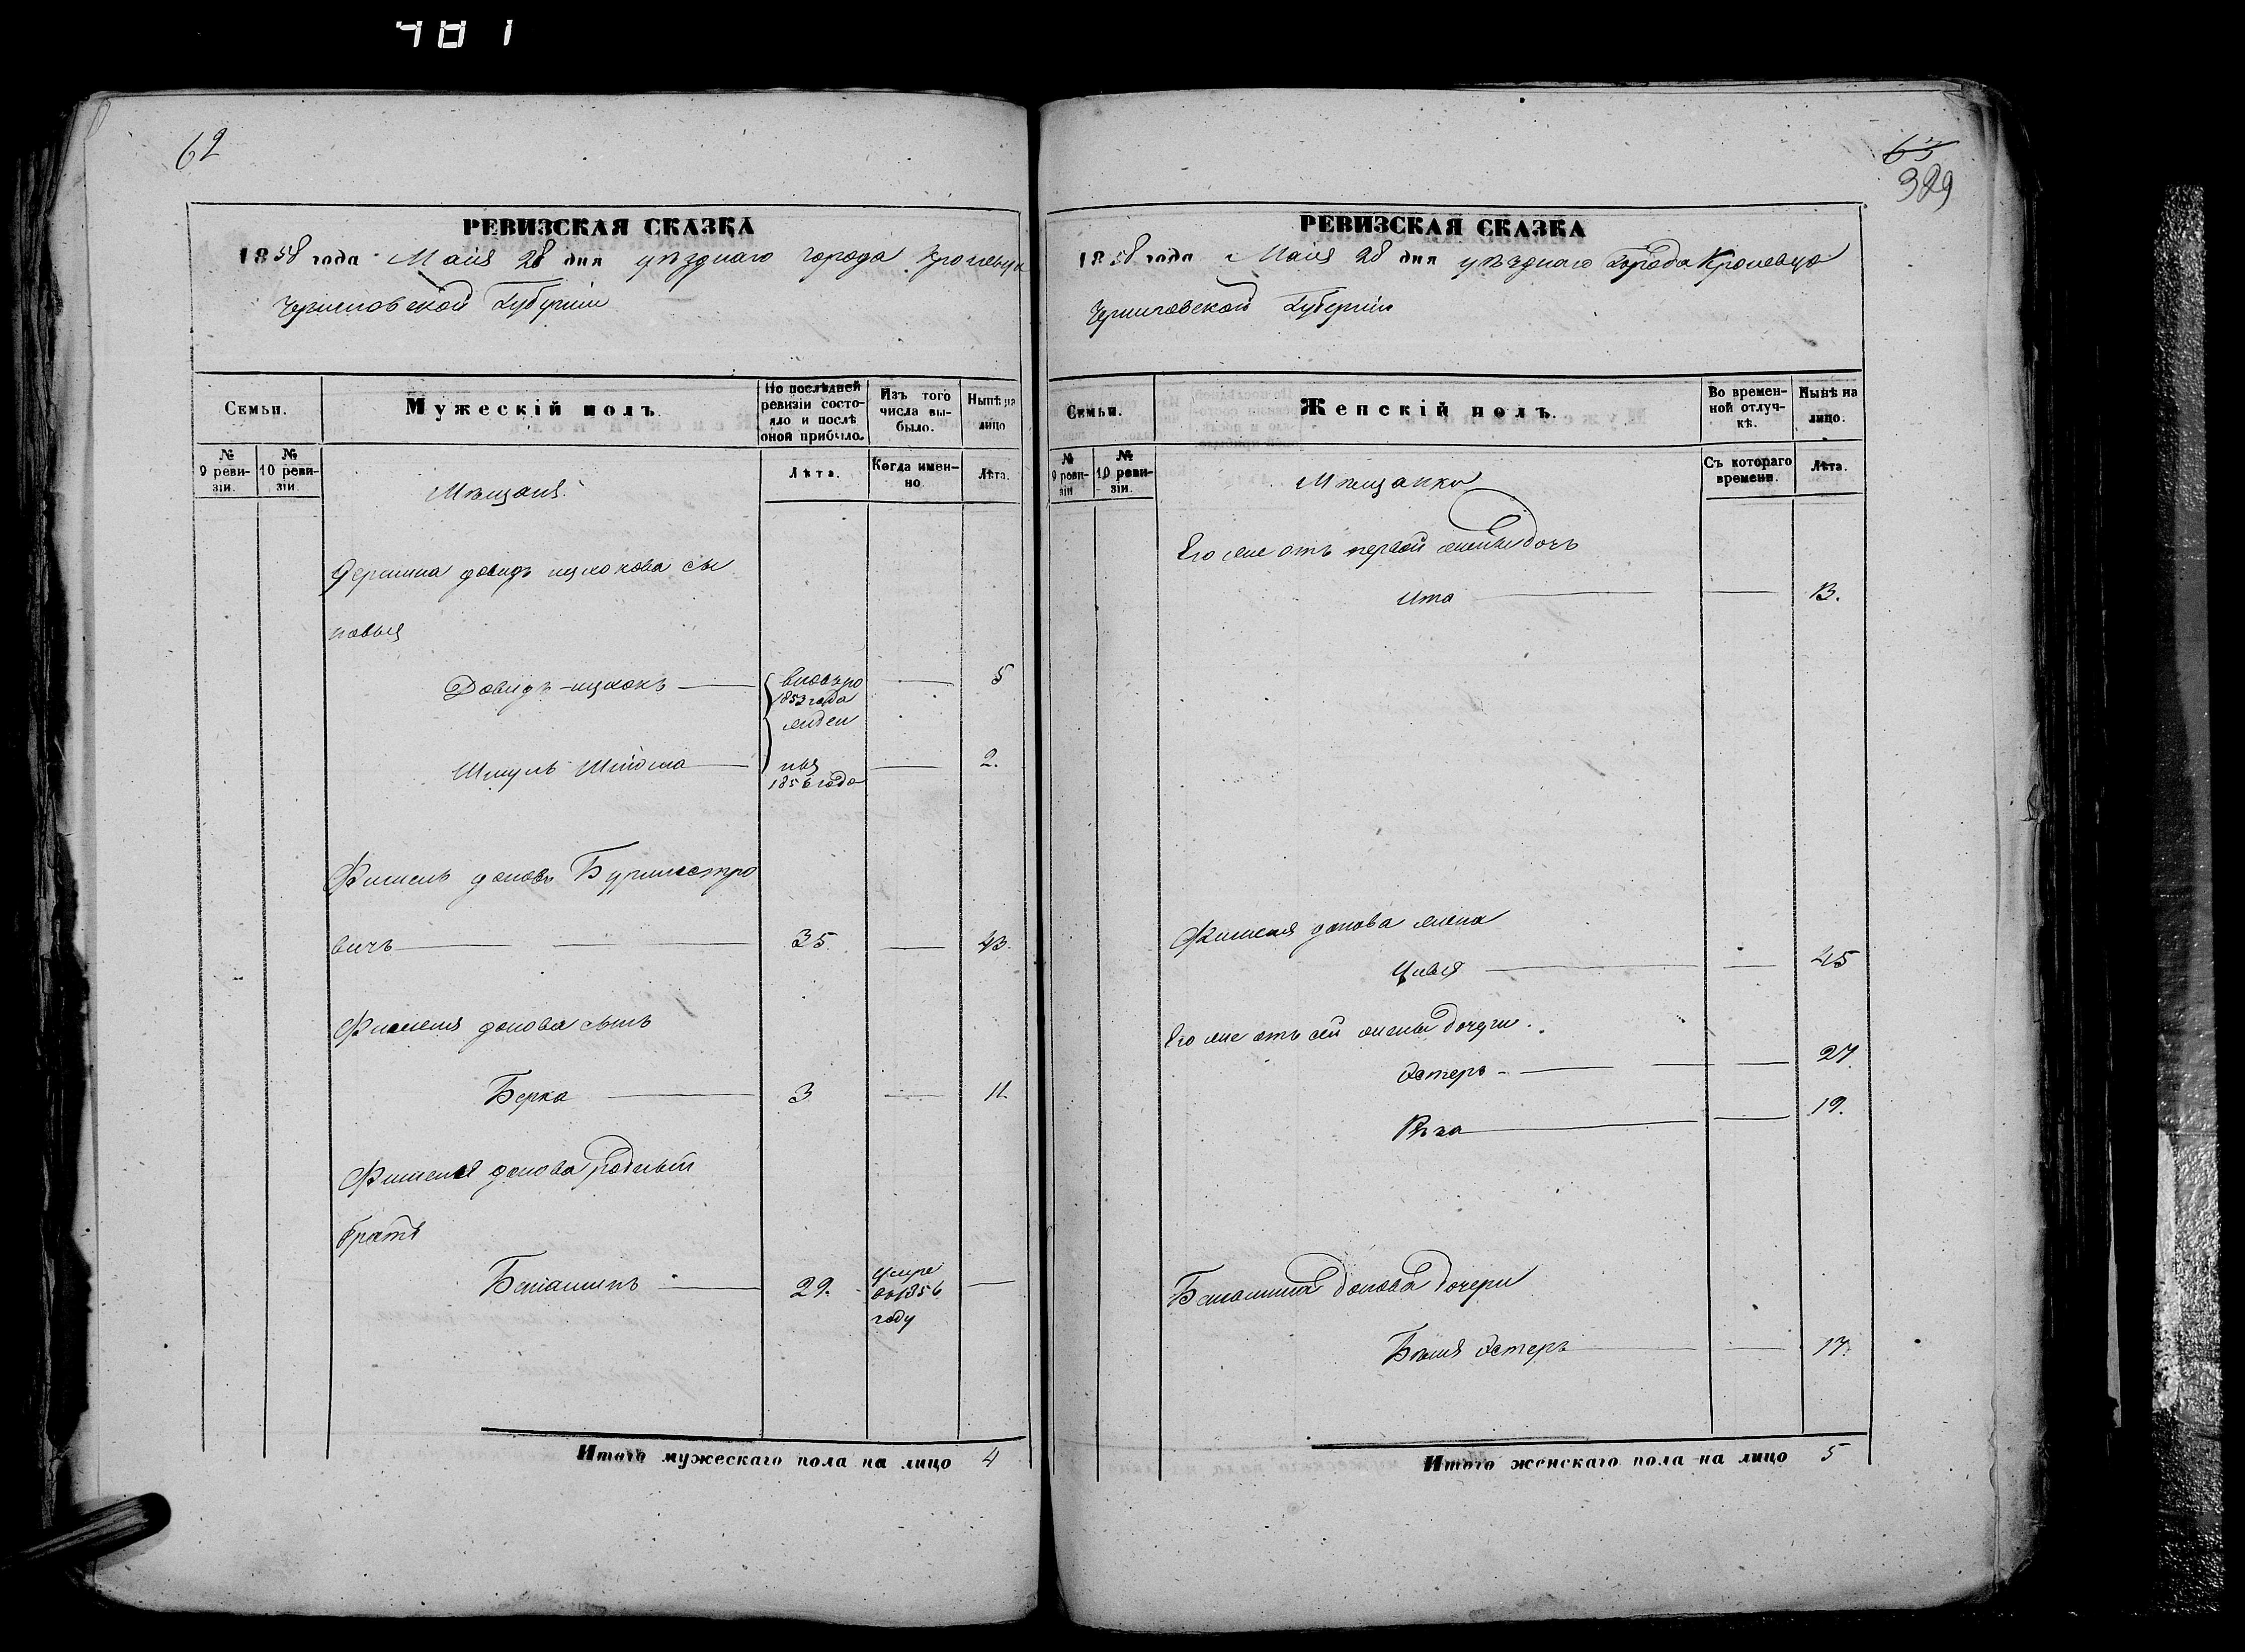 481
62
РЕВИЗСКАЯ СКАЗКА
1858 года Маія 28 дня уѣзднаго города Кролевца
Черниговской Губерніи
Семьи.
Мужескій полъ.
По послѣдней ревизіи состояло и послѣ оной прибыло.
Изъ того числа выбыло.
Нынѣ на лицо
№ 9 ревизіи.
№ 10 ревизіи.
Лѣта.
Когда именно
Лѣта.
Мѣщанѣ
довидъ ицкокова сы
новья
Довидъ-ицкокъ
1853 года
5
Шмуль
1856 года
2.
Фишель Бурмистро
вичъ
35.
43.
Фишеля сынъ
Берка
3
11.
Фишеля родный
братъ
Беньяминъ
29.
умре
во 1856
году
Итого мужескаго пола на лицо 4
63
389
РЕВИЗСКАЯ СКАЗКА
1858 года Маія 28 дня уѣзднаго Города Кролевца
Черниговской Губерніи
Семьи.
Женскій полъ.
Во временной отлучкѣ.
Нынѣ на лицо.
№ 9 ревизіи
№ 10 ревизіи.
Съ котораго времени.
Лѣта.
Мѣщанки
Его же отъ первой жены дочь
Ита
13.
Фишеля жена
Цивья
45
Его же отъ сей жены дочери.
Эстеръ
27
19.
Беньямина дочери
Эстеръ
17.
Итого женскаго пола на лицо 5